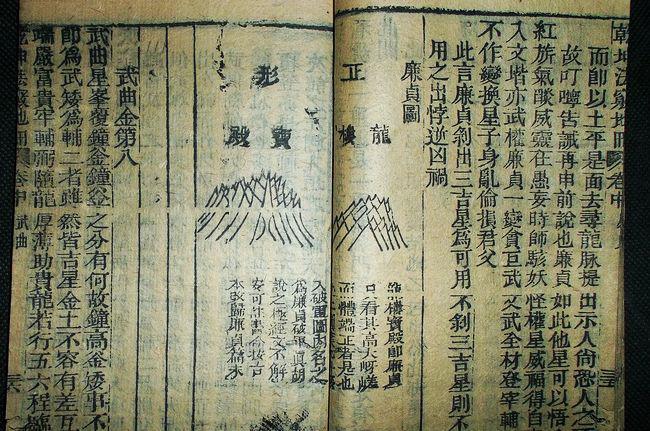 乾坤法竅地冊 卷中
而即以土平是面去尋龍脉提出示人尚恐人之
故叮嚀告誡再申前說也廉貞如此他星可以悟
紅旗氣燄威靈在愚妄時師駭妖怪權星威福得自
入文塔亦武權廉貞一變貪巨武文武全材登宰輔
不作變換星子身亂偷損君父
此言廉貞剝出三吉星為可用不剝三吉星則不
用之出悖逆凶禍
廉貞圖
正形
龍樓寶殿
龍樓寶殿即廉貞
只看其高大岈嵯
而體端正者是也
入破軍圖內名之
為廉貞破軍真胡
說之極經文不解
安可註書今按古
本改歸廉貞為永
武曲金第八
武曲星峯覆鐘釜鐘釜之分有何故鐘高釜矮事不
即為武矮為輔二者雖然皆吉星金土不容有差互
端嚴富貴牢輔弼隨龍厚薄助貴龍若行五六程臨
乾坤法竅地冊 卷中 武曲